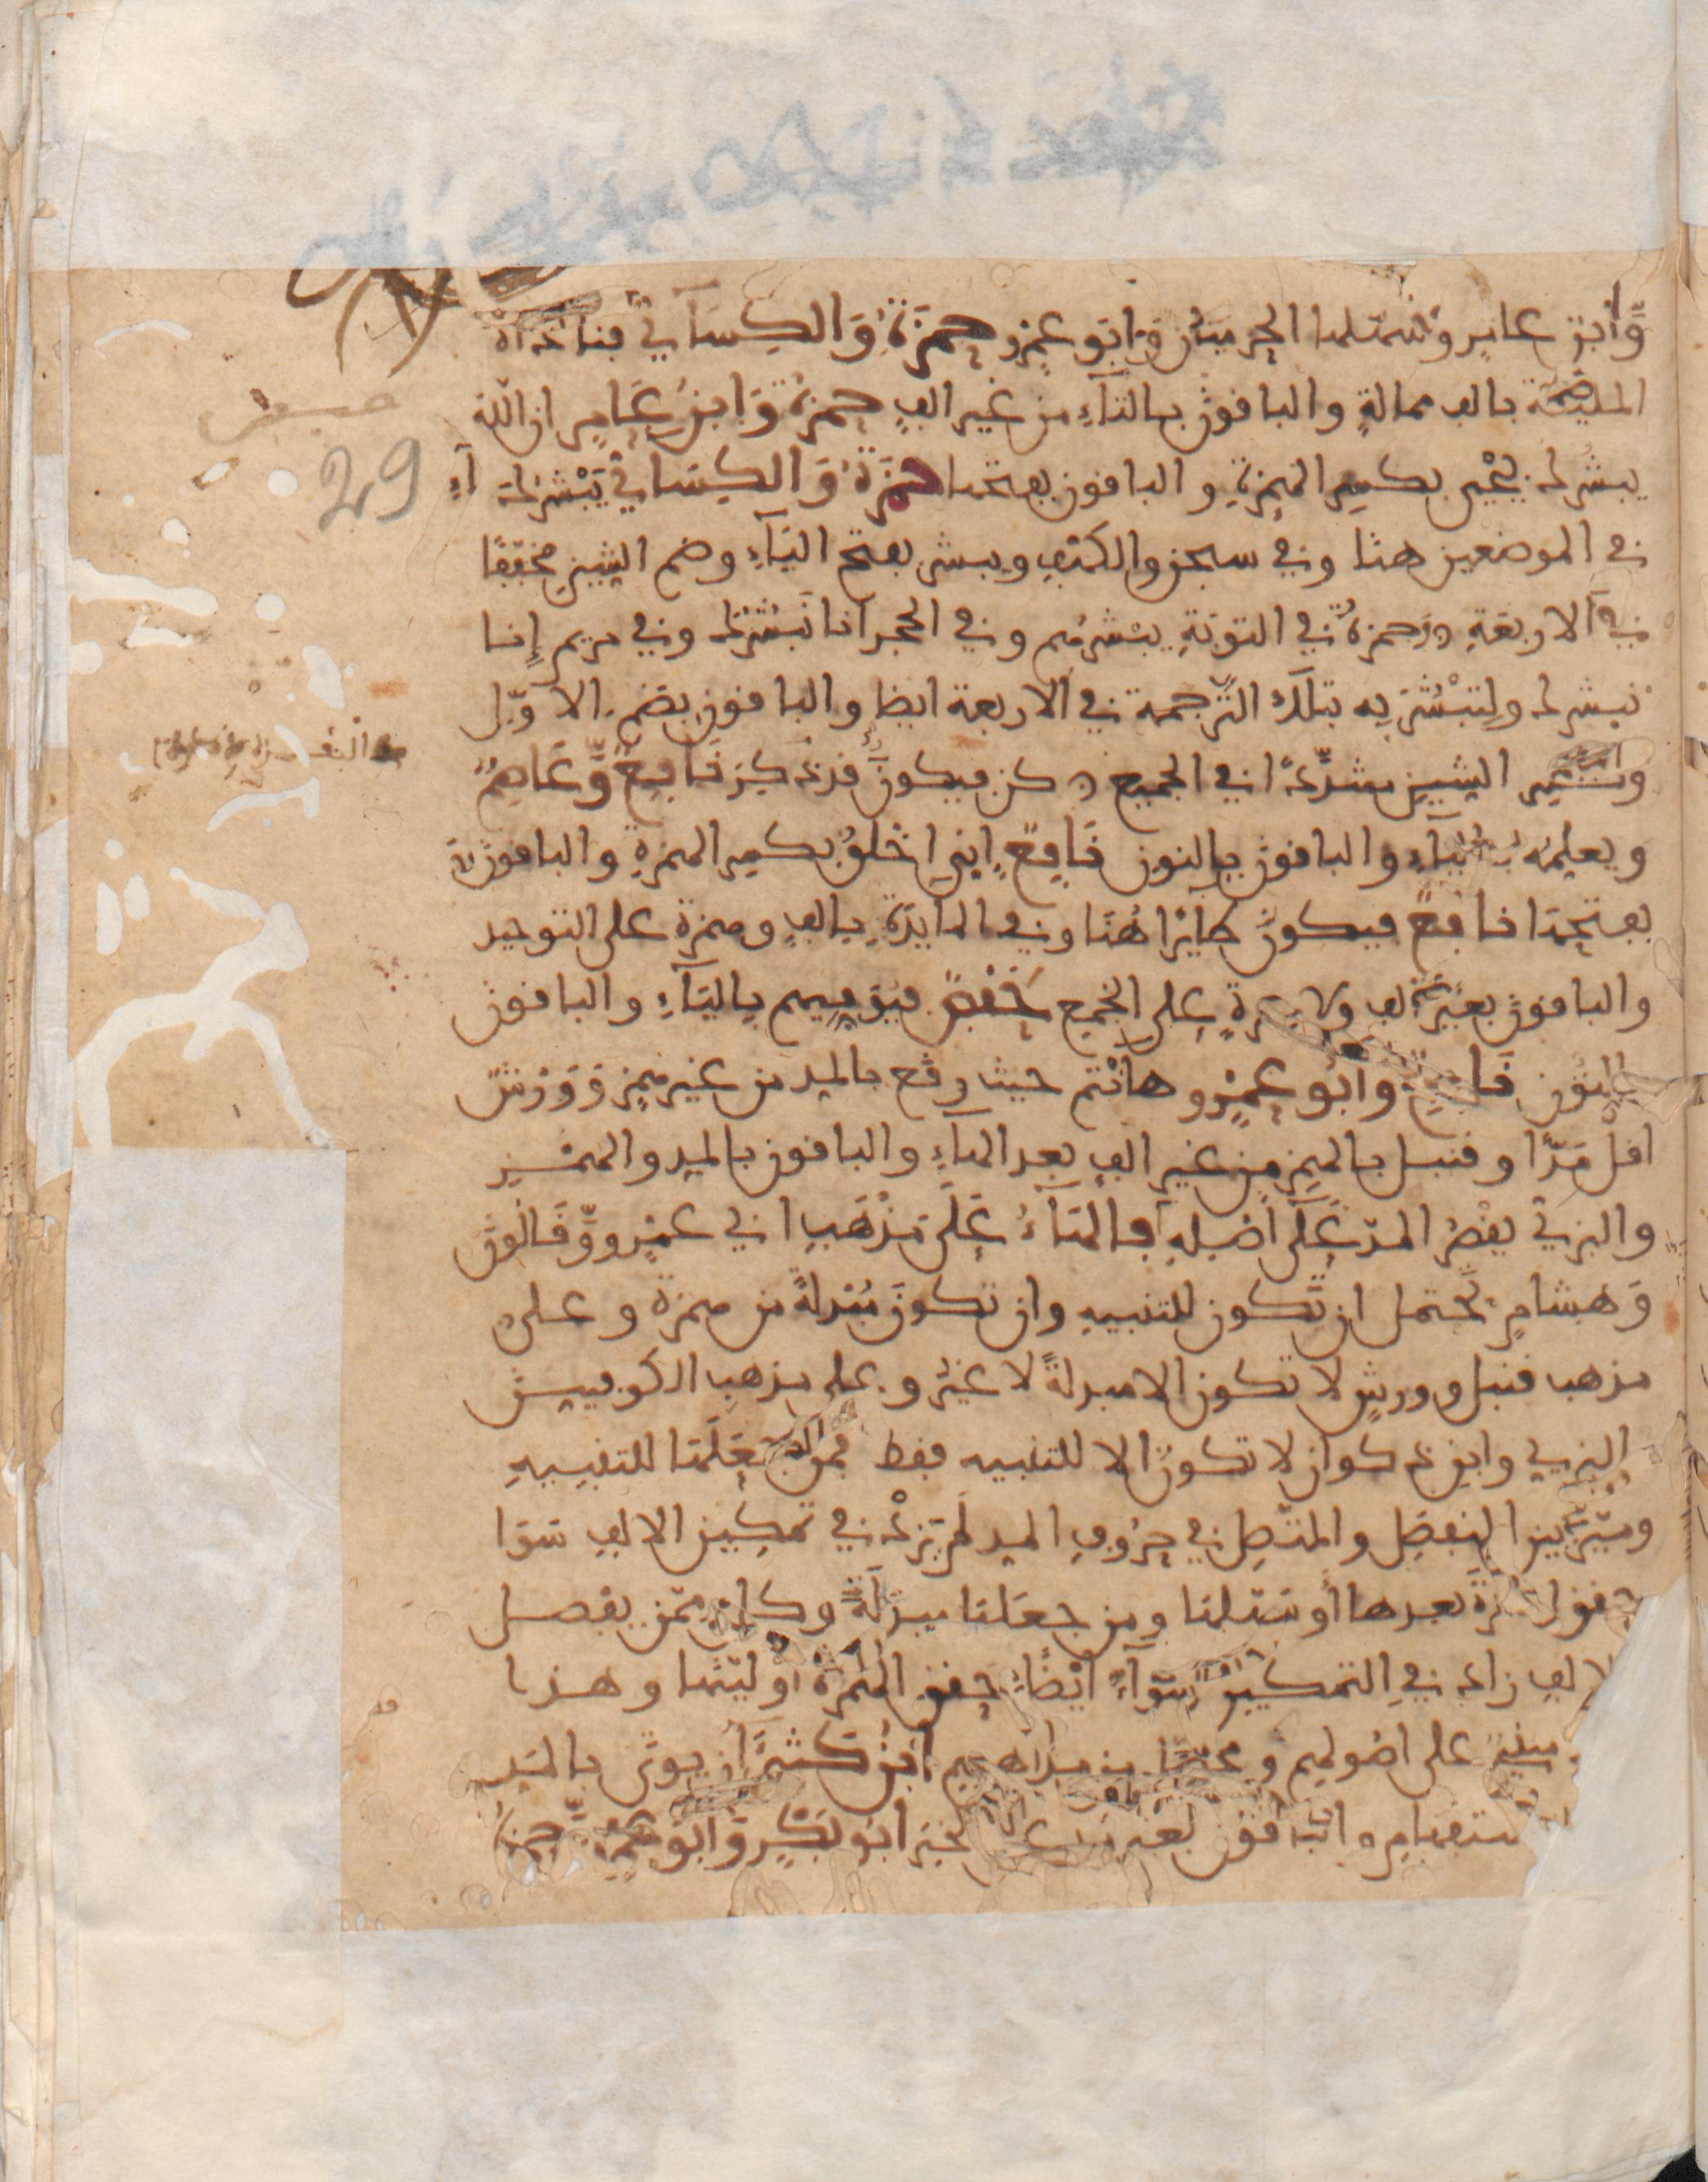 وَّابن عامر وسهلها الحرميان وابو عمرو حمزة والكسآي فناداه
المليكة بالف ممالة والباقون بالتآء من غير الف حمزة وابن عامر ان الله
يبشرك بيحيى بكسر الهمزة والباقون بفتحها حمزة والكساي يَبْشُرك
في الموضعين هنا وفي سبحن والكهف ويبشر بفتح اليآء وضم الشين مخففا
في الاربعة وحمزة في التوبة يبشرهم وفي الحجر انا نبشرك وفي مريم إنا
نبشرك ولتبشر به بتلك الترجمة في الاربعة ايضا والباقون بضم الاوّل
وكسر الشين مشدّدًا في الجميع كن فيكون قد ذكر نافع وَّعاصم
ويعلمه باليآء والباقون بالنون نافع إني اخلق بكسر الهمزة والباقون
بفتحها نافع فيكون طايرا هنا وفي المايدة بالف وهمزة على التوحيد
والباقون بغير الف ولا همزة على الجمع حفص فيوفيهم باليآء والباقون
بالنون نافع وابو عمرو هانتم حيث وقع بالمد من غير همز وورش
اقل مَدًّا وقنبل بالهمز من غير الف بعد الهآء والباقون بالمد والهمز
والبزي يقصر المدّ على اصله فالهآءُ على مذهب ابي عمرو وَّقالون
وهشام يحتمل ان تكون للتنبيه وان تكون مُبْدلةً من همزة وعلى
مذهب قنبل وورش لا تكون الا مبدلةً لا غير وعلى مذهب الكوفيين
والبزي وابن ذكوان لا تكون الا للتنبيه فقط فمن جعلها للتنبيه
وميّز بين المنفصل والمتّصل في حروف المد لم يزد في تمكين الالف سوا
حقق الهمزة بعدها أو سهّلها ومن جعلها مبدلةً وكان ممّن يفصل
بالالف زاد في التمكين سوآءً ايضًا حقق الهمزة او ليّنها وهذا
مبنى على اصولهم ومحصّل من مذاهبهم ابن كثير آن يوتى بالمد
ستفهام والباقون بغير مد على الخبر ابو بكر وابو عمرو وَّحمزة
29